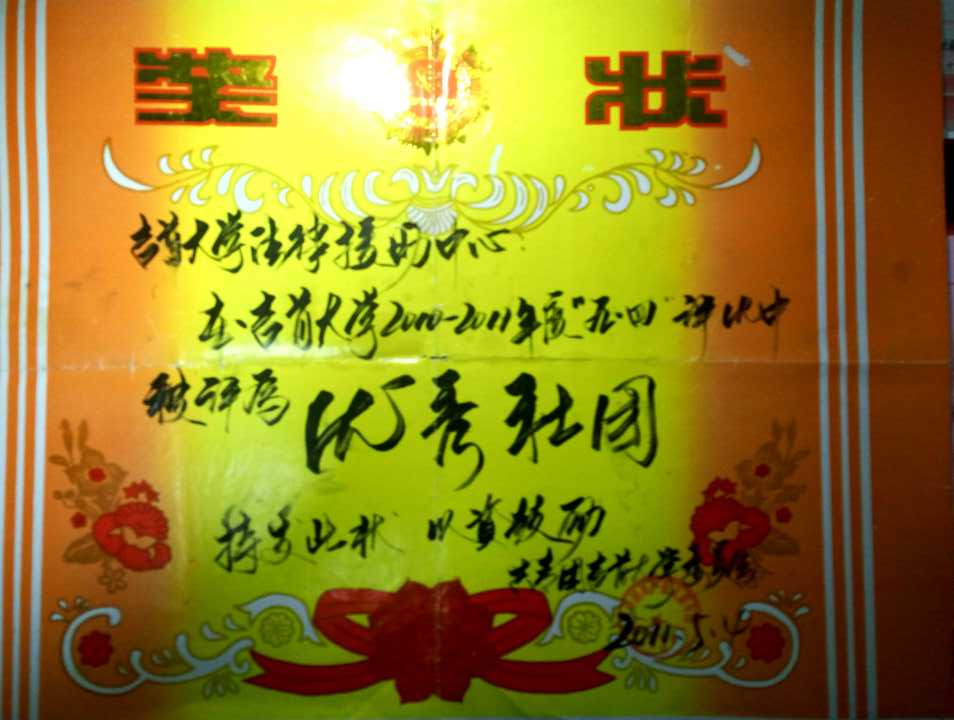 奖 状
吉首大学法律援助中心:
在吉首大学2010-2011年度"五四"评优中
被评为 优秀社团
特发此状 以资鼓励
共青团吉首大学委员会
2011.5.4